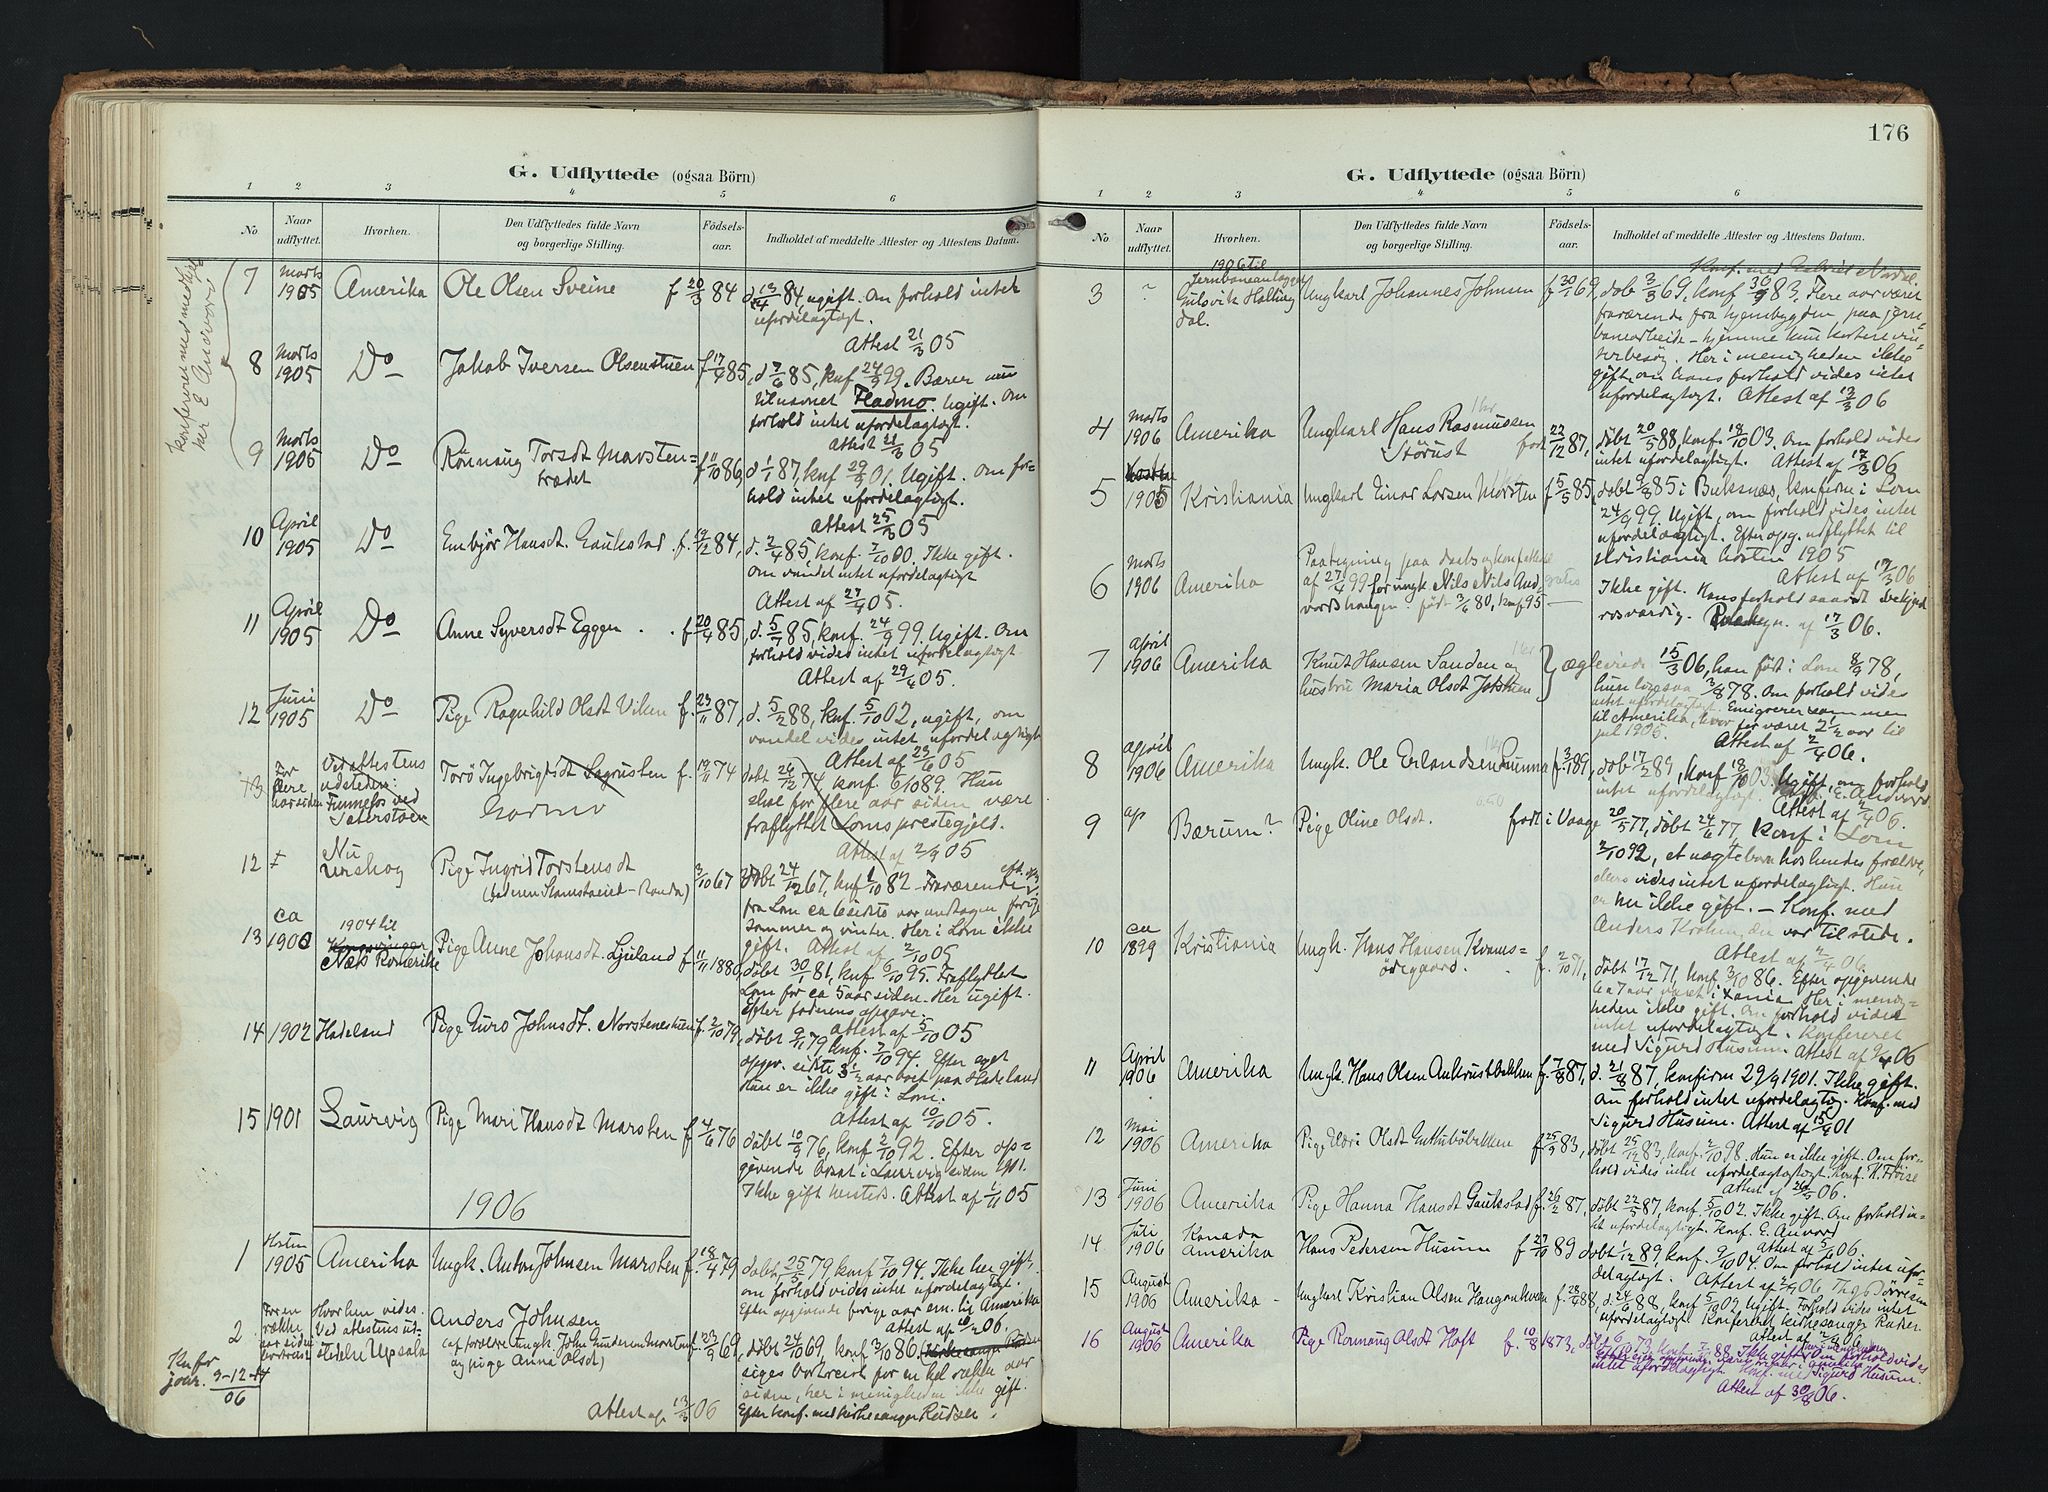 G. Udflyttede (ogsaa Börn)
1 2 3 4 5 6
No
Naar udflyttet.
Hvorhen.
Den Udflyttedes fulde Navn og borgerlige Stilling.
Födsels-aar.
Indholdet af meddelte Attester og Attestens Datum.
7 Marts 1905 Amerika Ole Olsen Sveine f 20/3 84
ugift. Om forhold intet
ufordelagtigt.
Attest 21/3 05
8 Marts 1905 Do Jakob Iversen Olsenstuen f 17/4 85,
d 7/6 85, konf 24/9 99. Bærer nu
tilnavnet Fladmo. Ugift. Om
forhold intet ufordelagtigt.
Attest 21/3 05
9 Marts 1905 Do Rönnaug Torsdt Marsten= f 11/10 86,
trædet
d 1/1 87, konf 29/9 01. Ugift. Om for=
hold intet ufordelagtigt.
Attest 25/3 05
10 April 1905 Do Embjör Hansdt. Gaukstad f. 19/12 84,
d. 2/4 85, konf. 7/10 00. Ikke gift.
Om vandel intet ufordelagtigt
Attest af 27/4 05.
11 April 1905 Do Anne Syversdt Eggen . . f 20/4 85,
d. 5/7 85, konf. 24/9 99. Ugift. Om
forhold vides intet ufordelagtigt.
Attest af 29/4 05.
12 Juni 1905 Do Pige Ragnhild Olsdt Viken f. 23/11 87,
d. 5/2 88, konf. 5/10 02, ugift, om
vandel vides intet ufordelagtigt
Attest af 23/6 05
13 For flere aar siden
Ved attestens
udstedelse:
Torö Ingebrigtsdt f. 19/11 74
döbt 26/12 74, konf. 6/10 89. Hun
skal for flere aar siden være
fraflyttet Loms prestegjeld.
Attest af 2/9 05
12 Nu Urskog Pige Ingrid Torstensdt 3/10 67
döbt 24/12 67, konf 1/10 82 - Fraværende
fra Lom ca 6 sidste aar undtagen forrige
sommer og vinter. Her i Lom ikke
gift. Attest af 2/10 05
13 ca 1900 1904 til
Næs Romerike Pige Anne Johansdt. Ljuland f 11/11 1880,
döbt 30/1 81, konf 6/10 95. Fraflyttet
Lom for ca 5 aar siden. Her ugift.
Efter faderens opgave.
Attest af 5/10 05
14 1902 Hadeland Pige Guro Johnsdt. Norstenestuen f. 2/10 79,
döbt 9/11 79 konf. 7/10 94. Efter eget
opgiv. sidste 3 1/2 aar boet paa Hadeland
Hun er ikke gift i Lom.
Attest af 10/10 05.
15 1901 Laurvig Pige Mari Hansdt Marsten f 4/6 76
döbt 10/9 76, konf 2/10 92. Efter op=
givende bosat i Laurvig siden 1901.
Ikke gift Attest af 1/11 05
1906
1 Hösten 1905 Amerika Ungk. Anton Johnsen Marsten f. 18/4 79
döbt 25/5 79, konf 7/10 94. Ikke her gift.
om forhold vides intet ufordelagtigt.
Efter opgivende forrige aar em. til Amerika
Attest af 10/2 06.
2. For en række aar siden bortreist
Hvorhen vides.
Ved attestens ud=
stedelse Upsala
Anders Johnsen f. 23/9 69,
og pige Anna Olsdt)
döbt 24/10 69, konf 3/10 86
siges bortreist for en hel række aar
siden, her i menigheden ikke gift.
Efter konf. med kirkesanger Rudser.
Attest af 13/3 06
176
G. Udflyttede (ogsaa Börn)
1 2 3 4 5 6
No
Naar udflyttet.
Hvorhen.
Den Udflyttedes fulde Navn og borgerlige Stilling.
Födsels-aar.
Indholdet af meddelte Attester og Attestens Datum.
3 ? 1906 til
Jernbaneanlægget
Gulsvik Halling
dal.
Ungkarl Johannes Johnsen f 30/1 69,
döb 3/3 69, konf 30/9 83. Flere aar været
fraværende fra hjembygden paa jern=
banearbeide - hjemme kun kortere vin=
terbesög. Her i menigheden ikke
gift, om hans forhold vides intet
ufordelagtigt. Attest af 13/3 06
4 Marts 1906 Amerika Ungkarl Hans Rasmussen
Störust födt 22/12 87,
döbt 20/5 88, konf. 18/10 03. Om forhold vides
intet ufordelagtigt. Attest af 17/3 06
5 1905 Kristiania Ungkarl Einar Larsen Marsten f 5/5 85,
döbt 9/8 85 i Buksnæs, konfirm i Lom
24/9 99. Ugift, om forhold vides intet
ufordelagtigt. Efter opg. udflyttet til
Kristiania hösten 1905
Attest af 17/3 06
6 Marts 1906 Amerika Paategning paa daabs og konf attest
af 27/4 99 for ungk. Nils Nils And
vordshaugen födt 3/6 80, konf 95 - gratis
Ikke gift. Hans forhold saavidt bekjendt
rosværdig. af 17/3 06.
7 April 1906 Amerika Knut Hansen Sanden og
hustru Maria Olsdt
ægteviede 15/3 06, han födt i Lom 8/9 78,
hun ligesaa 3/8 78. Om forhold vides
intet ufordelagtigt. Emigrerer sammen
til Amerika, hvor før været 2 1/2 aar til
jul 1905.
Attest af 2/4 06.
8 April 1906 Amerika Ungk. Ole Erlandsen Sunna f. 3/1 89,
döb 17/2 89, konf 18/10 03. Ugift, om forhold
intet ufordelagtigt. E. Andvord
Attest af 2/4 06.
9 ap Bærum? Pige Oline Olsdt. 0.50
födt i Vaage 20/5 77, döbt 24/6 77 konf i Lom
2/10 92, et uægte barn hos hendes forældre,
ellers vides intet ufordelagtigt. Hun
er nu ikke gift. - Konf. med
Anders Krohn, der var til stede.
Attest af 2/4 06
10 ca 1899 Kristiania Ungk. Hans Hansen Kvams=
ödegaard. f. 2/10 71,
döbt 17/12 71, konf 3/10 86. Efter opgivende
ca 7 aar været i Xania Her i menig=
heden ikke gift. Om forhold vides
intet ufordelagtigt. Konfereret
med Sigurd Husum. Attest af 9/4 06
11 April 1906 Amerika Ungk. Hans Olsen Aukrustbakken f. 7/8 87,
d. 21/8 87, konfirm 29/9 1901. Ikke gift.
Om forhold intet ufordelagtig. Konf. med
Sigurd Husum. Attest af 15/4 01
12 Mai 1906 Amerika Pige Olsdt f 25/9 83,
döbt 25/12 83, konf. 2/10 98. Hun er ikke gift. Om for=
hold vides intet ufordelagtigt. Konf. K. Fröise
Attest af 26/5 06.
13 Juni 1906 Amerika Pige Hanna Hansdt Gaukstad f. 26/2 87,
döbt 22/5 87, konf. 5/10 02. Ikke gift. Om forhold in=
tet ufordelagtigt. Konf. E. Anvord
Attest af 5/6 06.
14 Juli 1906 Kanada
Amerika Hans Pedersen Husum f 27/10 89
döbt 1/12 89, konf. 9/10 04. Om forhold intet ufor=
delagtigt.
15 August 1906 Amerika - Ungkarl Kristian Olsen Haugankvam f. 28/4 88,
d. 24/6 88, konf. 5/10 02 Ugift. Forhold vides intet
ufordelagtigt Konfereret kirkesanger Rudser.
16 August 1906 Amerika Pige Rönnaug Olsdt Hoft f. 10/8 1873,
Ikke gift Om forhold vides
intet ufordelagtigt. Konf. med Sigurd Husum.
Attest af 30/8 06.